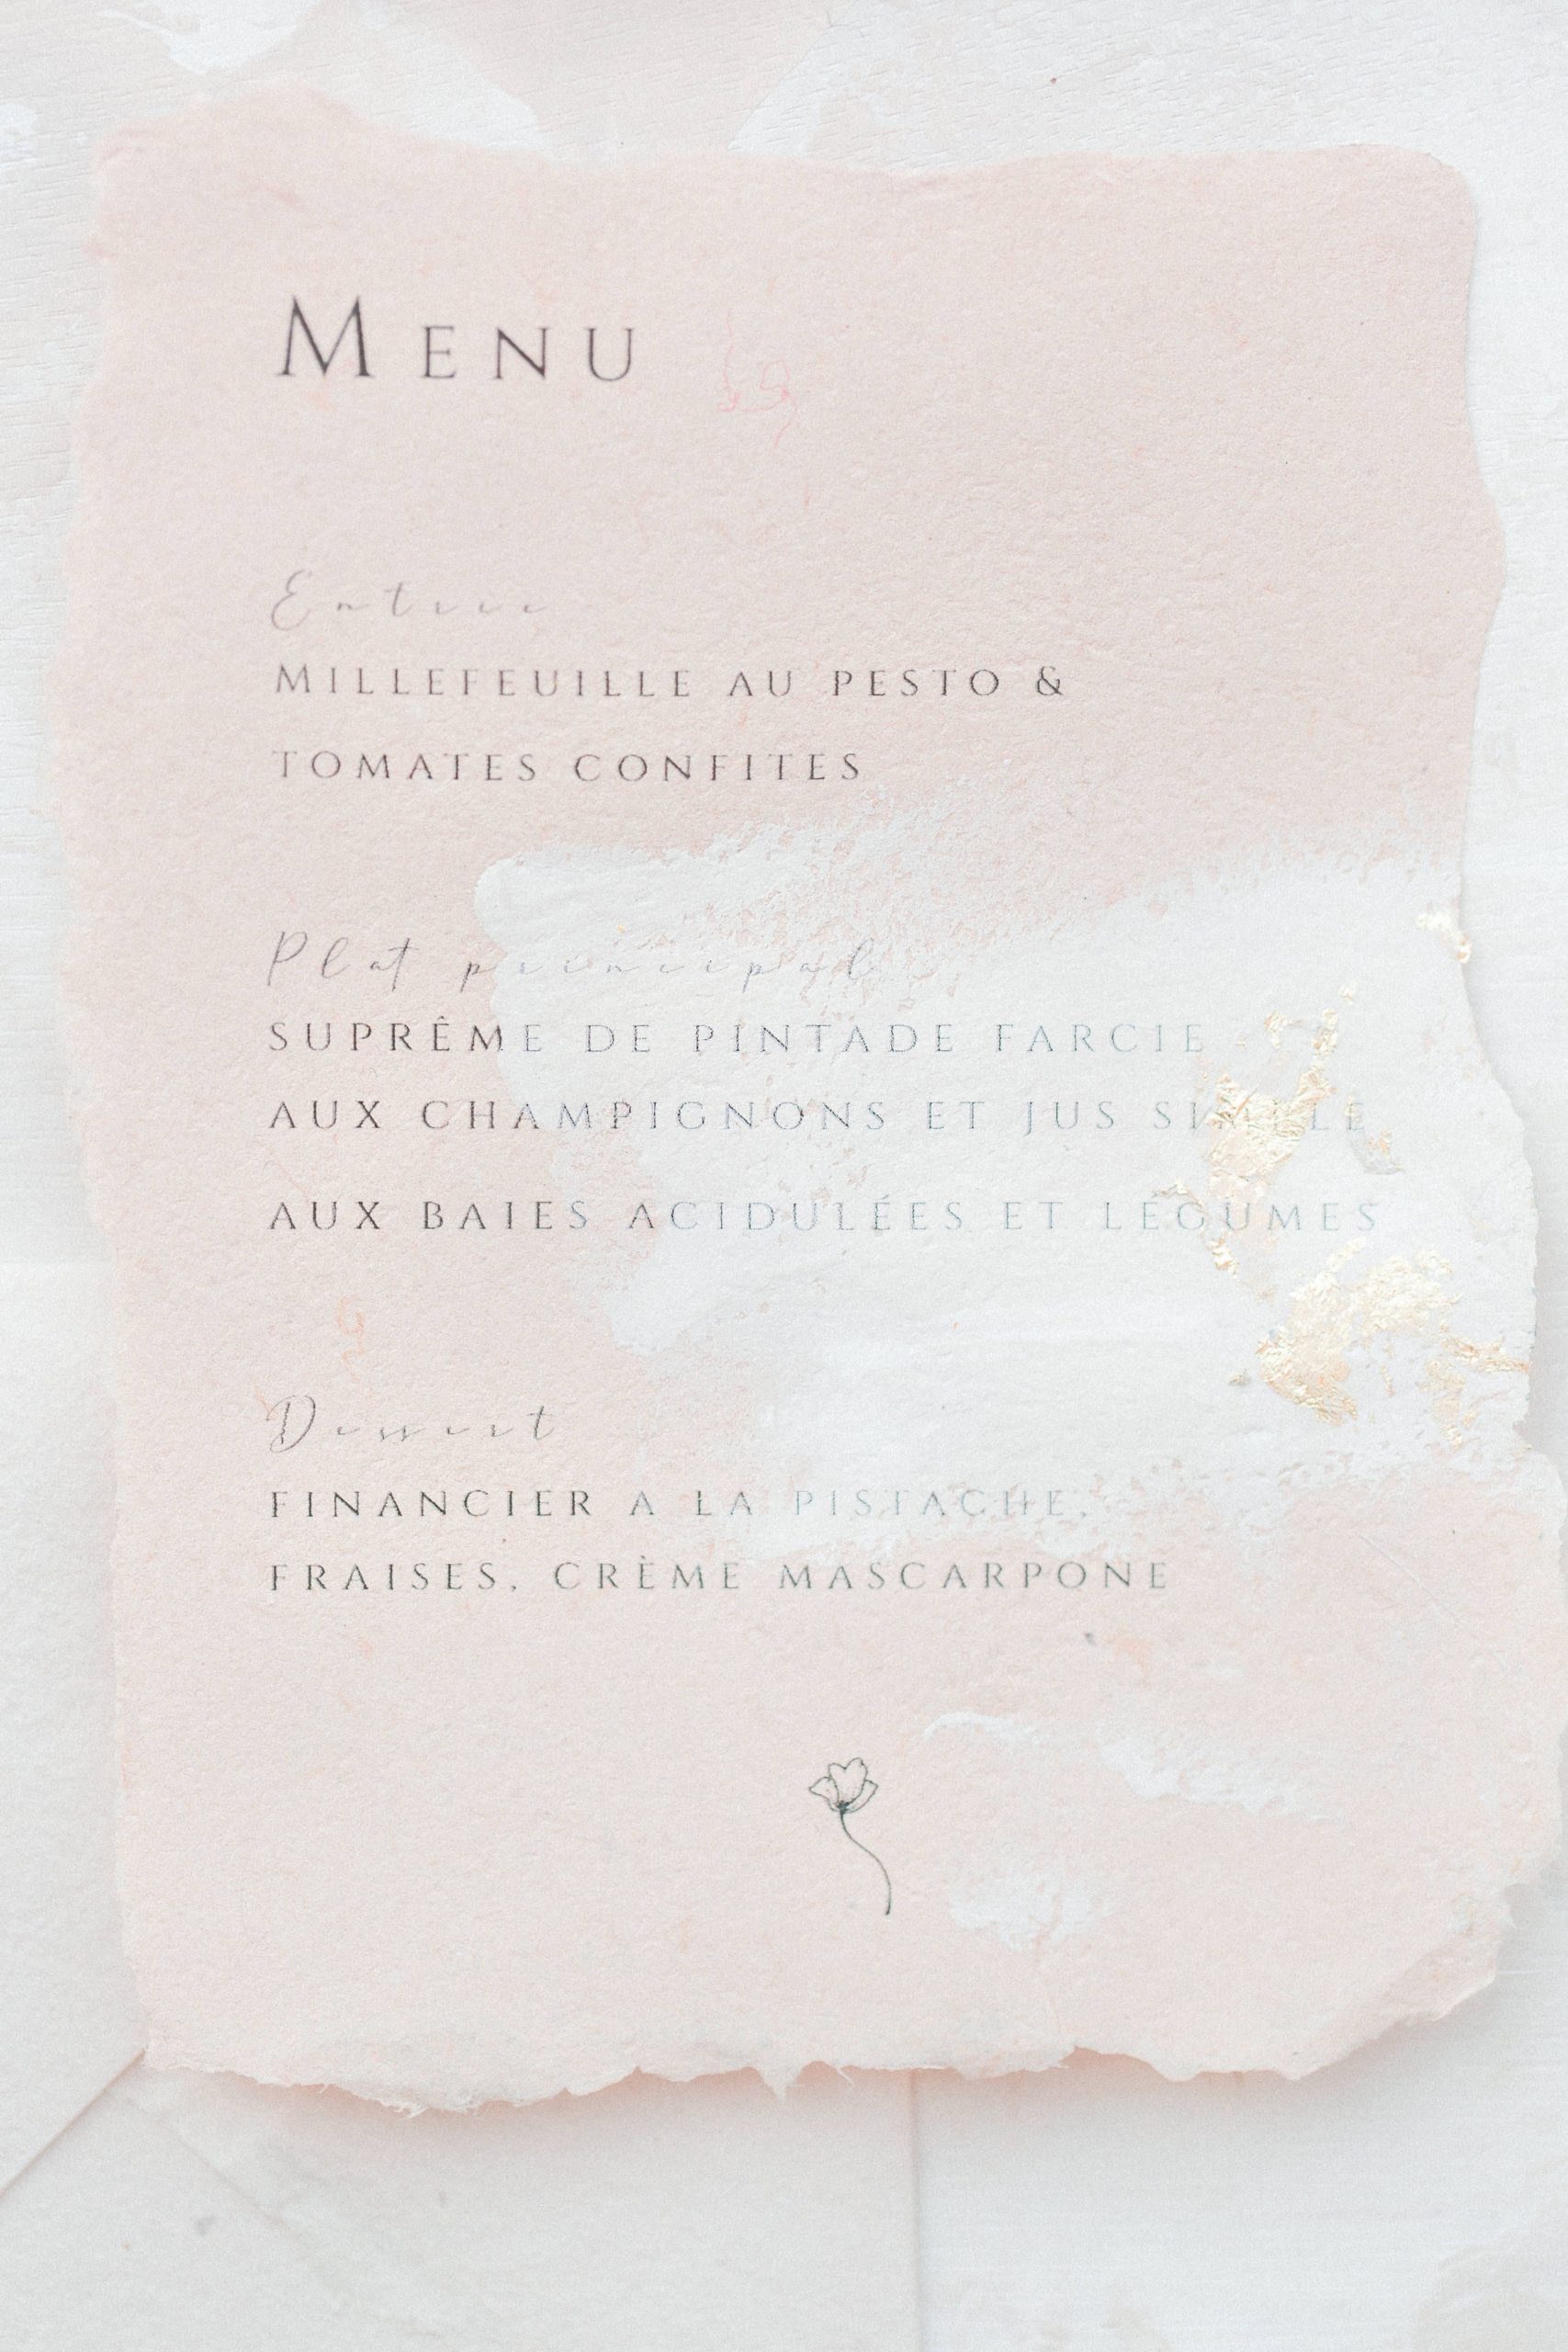 MENU
Entrée
MILLEFEUILLE AU PESTO &
TOMATES CONFITES
Plat principal
SUPRÊME DE PINTADE FARCIE
AUX CHAMPIGNONS ET JUS SIMPLE
AUX BAIES ACIDULÉES ET LÉGUMES
Dessert
FINANCIER A LA PISTACHE,
FRAISES, CRÈME MASCARPONE